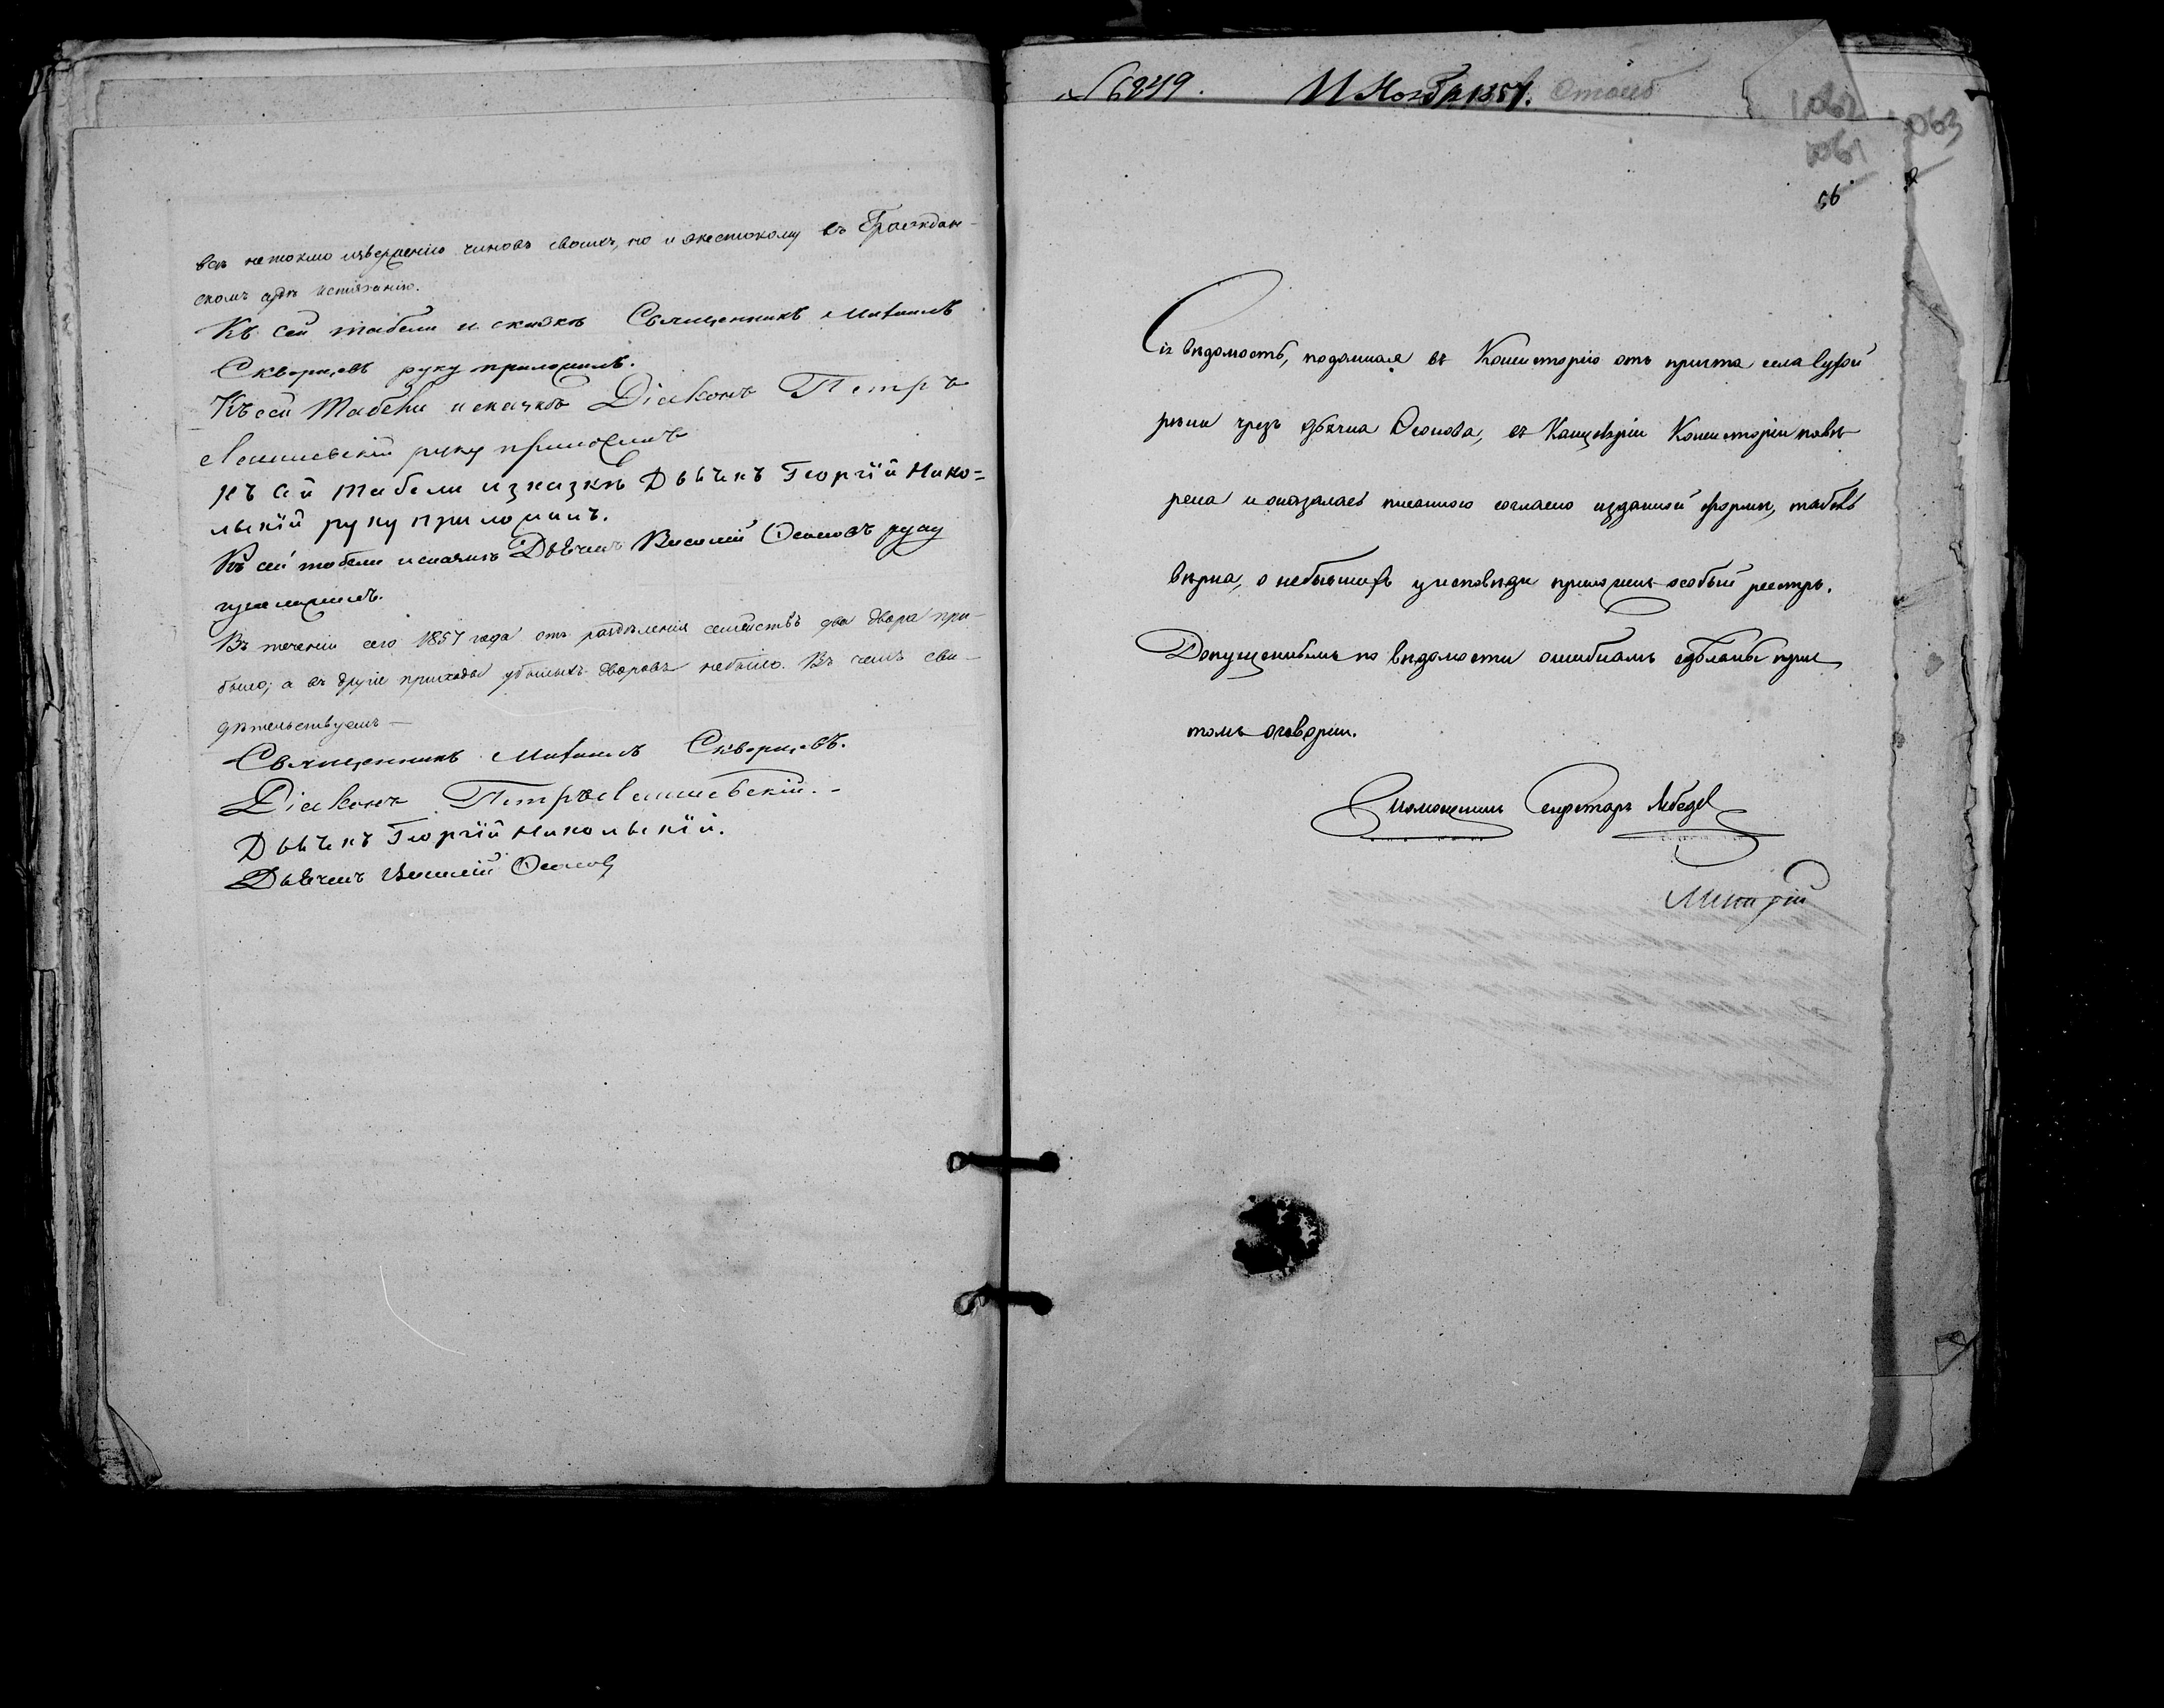 вѣ не токмо изверженію чиновъ своихъ, но и жестокому въ Граждан-
скомъ судѣ истязанію.
Къ сей табели и сказкѣ Священникъ Михаилъ
Скворцовъ руку приложилъ.
Къ сей табели и сказкѣ Діаконъ Петръ
руку приложилъ
Къ сей табели и зказкѣ Дьячкъ Георгій Нико=
льскій руку приложилъ.
Къ сей табели и сказкѣ Дьячекъ Василій Осиповъ руку
приложилъ.
Въ теченіи сего 1857 года отъ раздѣленія семействъ два двора при-
было; а въ другіе приходы убылыхъ дворовъ небыло. Въ чемъ сви-
дѣтельствуемъ —
Священникъ Михаилъ Скворцовъ.
Діаконъ Петръ
Дьячкъ Георгій Никольскій.
Дьячекъ Василій Осиповъ
№ 6249. 11 Ноября 1857.
1062
1061
1063
56
Сія вѣдомость, поданная въ Консисторію отъ причта села Сухой
рѣки чрезъ дьячка Осипова, въ Канцеляріи Консисторіи повѣ-
рена и оказалась писанною согласно изданной формы, табель
вѣрна, о небывшихъ у исповѣди приложенъ особый реестръ.
Допущеннымъ по вѣдомости ошибкамъ сдѣланы прич
томъ оговорки.
Секретарь Лебедев